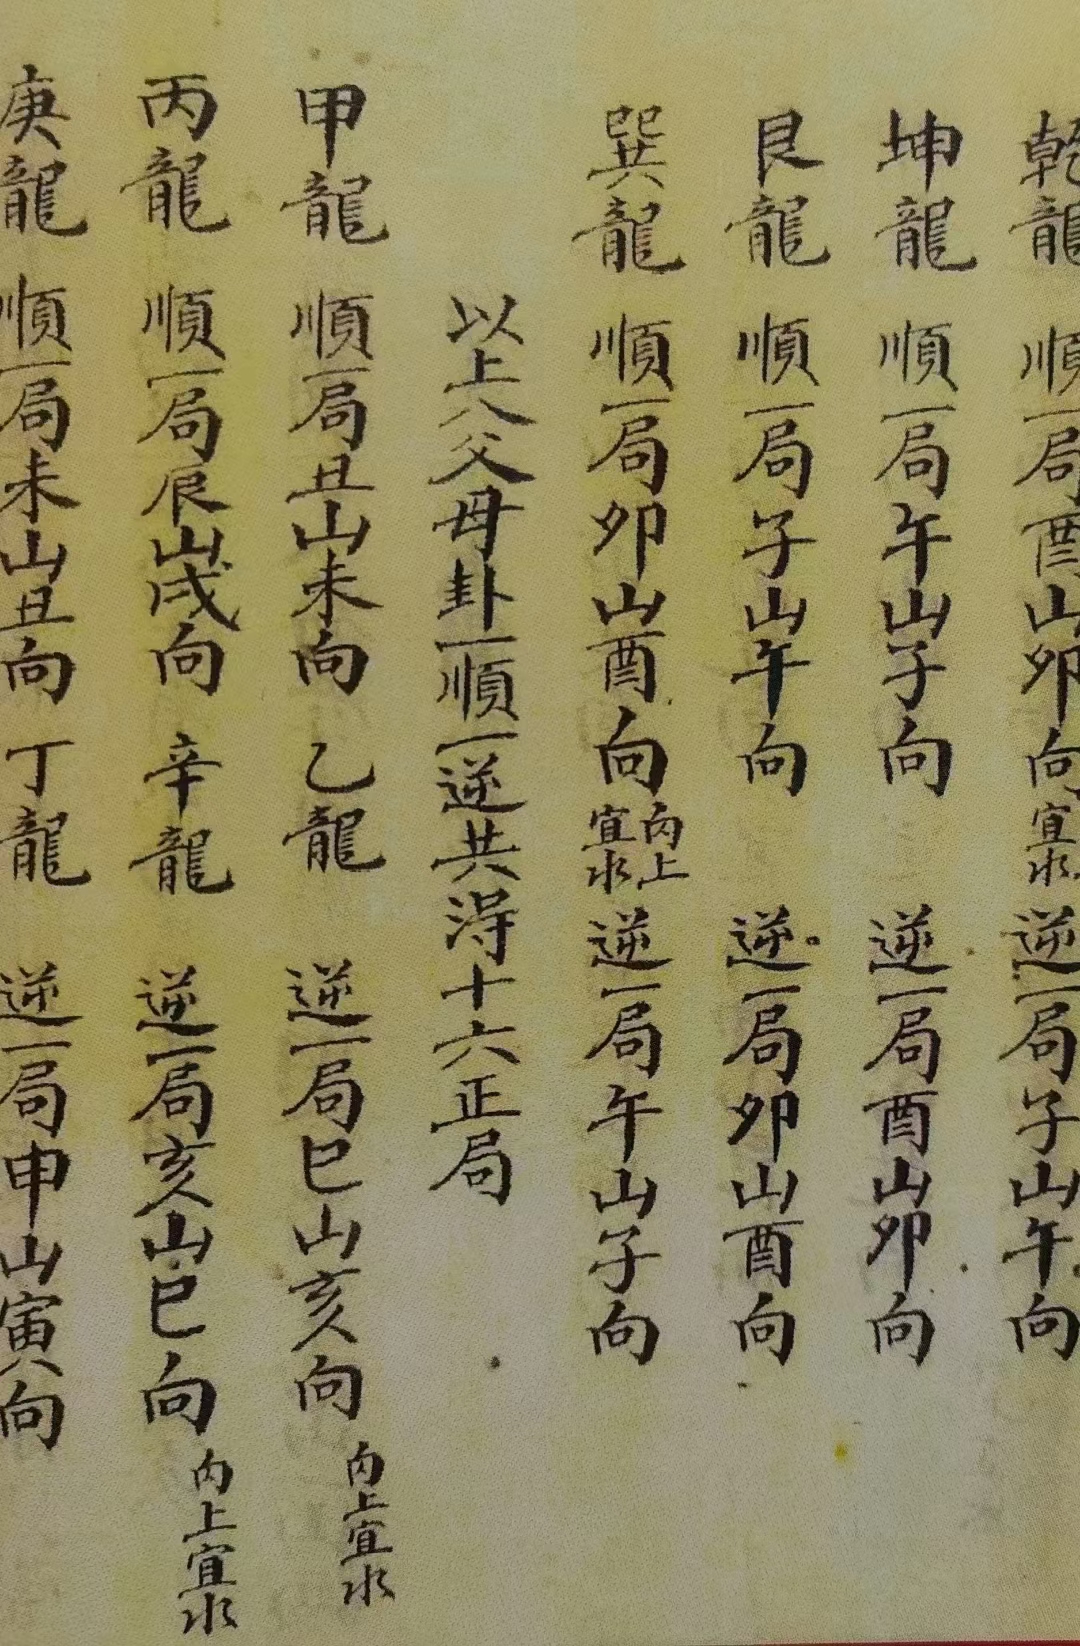 乾龍 順一局酉山卯向 宜水 逆一局子山午向
坤龍 順一局午山子向 逆一局酉山卯向
艮龍 順一局子山午向 逆一局卯山酉向
巽龍 順一局卯山酉向 內上宜水 逆一局午山子向
以上八父母卦一順一逆共淂十六正局
甲龍 順一局丑山未向 乙龍 逆一局巳山亥向 內上宜水
丙龍 順一局辰山戌向 辛龍 逆一局亥山巳向 內上宜水
庚龍 順一局未山丑向 丁龍 逆一局申山寅向